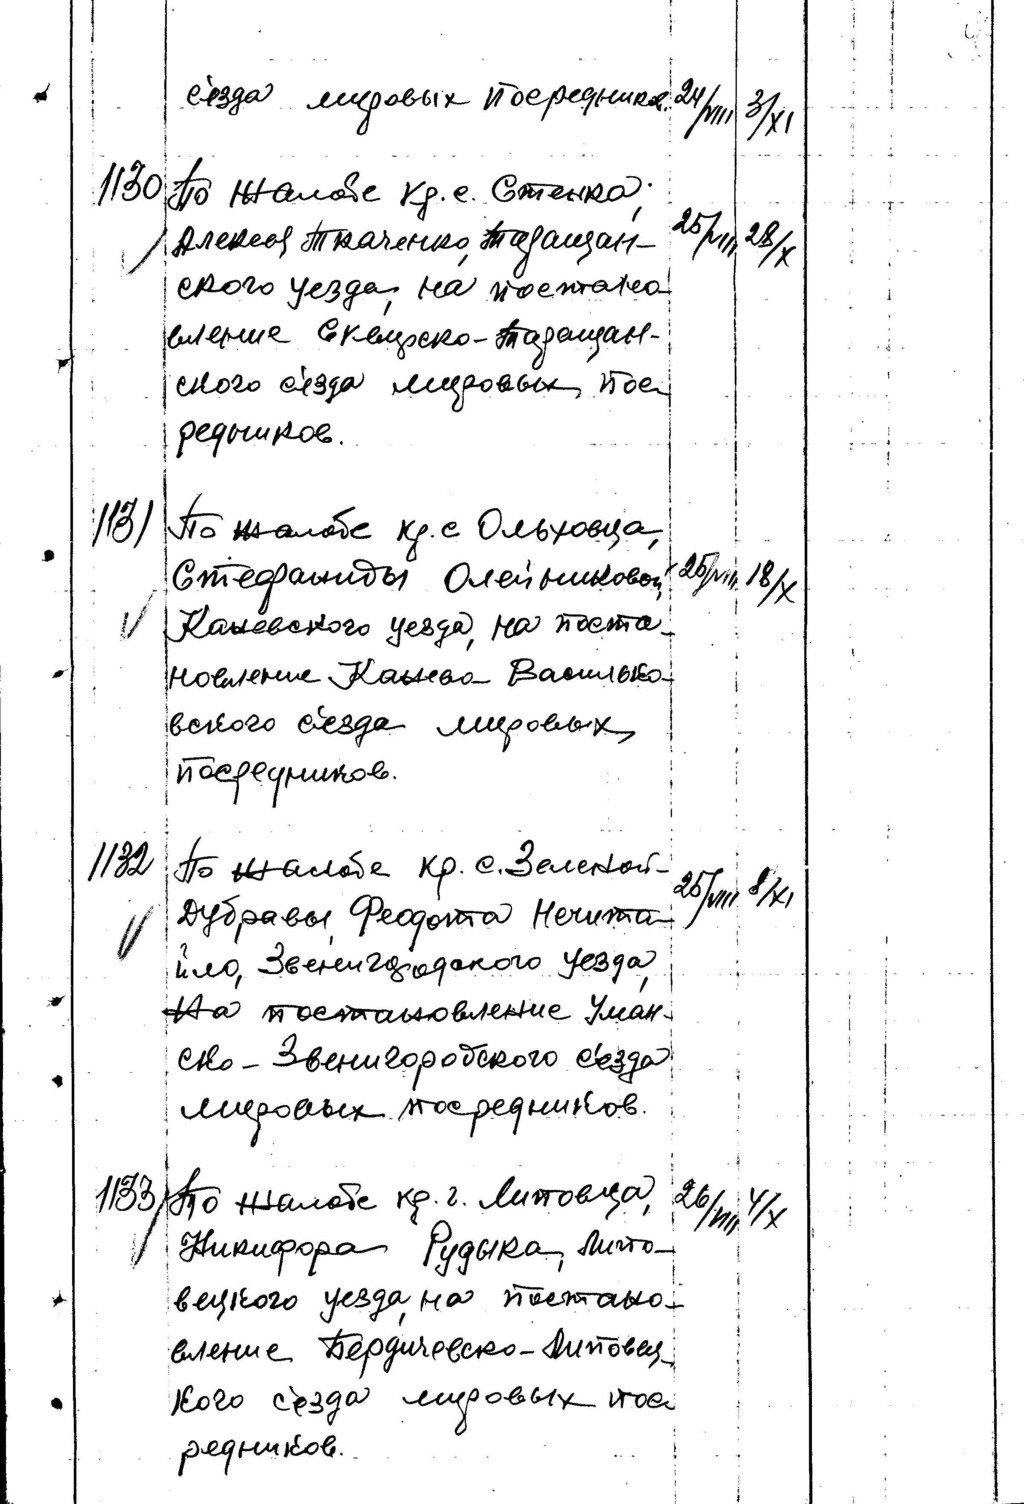 с'езда мировых посредников. 24/VIII 3/XI
1130 По жалобе кр. с. Стенка,
Алексея Ткаченко, Таращан- 25/VIII 28/X
ского уезда, на постано
вление Сквирско-Таращан-
ского с'езда мировых пос
редников.
1131 По жалобе кр. с Ольховца,
Стефаниды Олейниковой 25/VIII 18/X
Каневского уезда, на поста-
новление Канево-Василько-
вского с'езда мировых
посредников.
1132 По жалобе кр. с. Зеленой- 25/VIII 8/XI
Дубравы, Феодота Нечита-
йло, Звенигородского уезда,
на постановление Уман-
ско-Звенигородского с'езда
мировых посредников.
1133 По жалобе кр. г. Липовца, 26/VIII 4/X
Никифора Рудыка, Липо-
вецкого уезда, на постано-
вление Бердичевско-Липовец
кого с'езда мировых пос
редников.